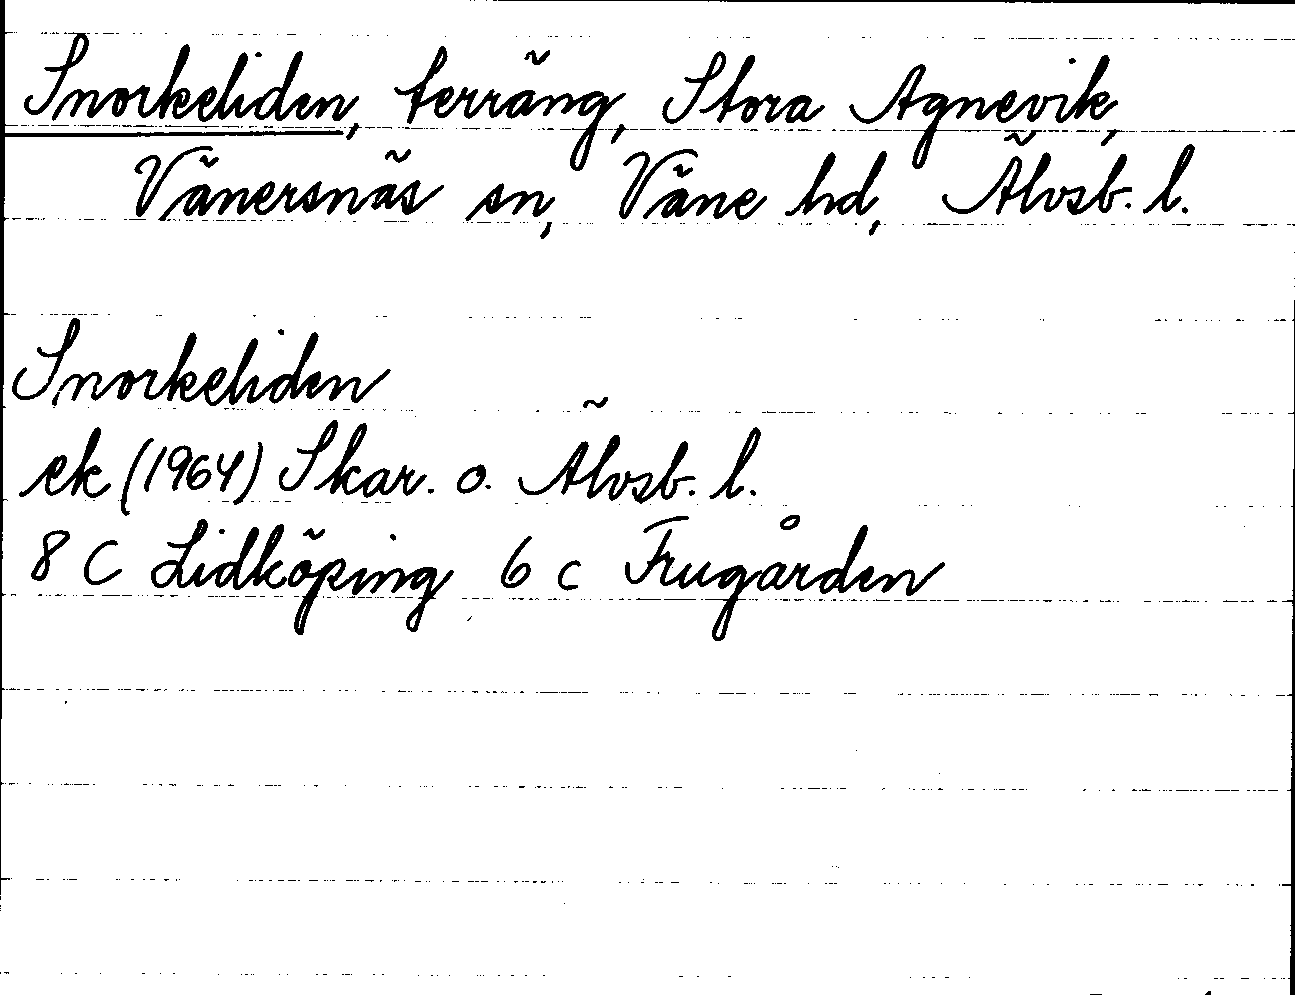 Snorkeliden, terräng, Stora Agnevik,
Vänersnäs sn, Väne hd, Älvsb. l.
Snorkeliden
ek (1964) Skar. o. Älvsb. l.
8 C Lidköping 6 c Frugården